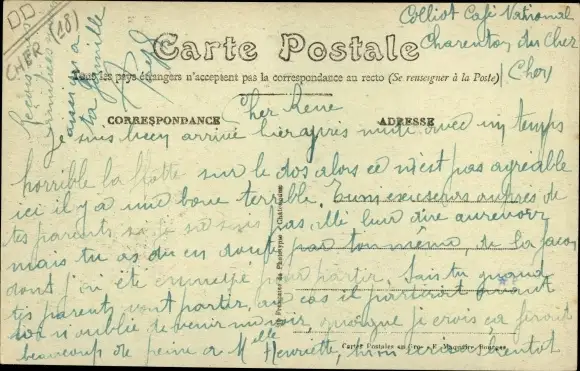 Colliot Café National
Charenton du Cher
(Cher)
CHER (18)
Carte Postale
Tous les pays étrangers n'acceptent pas la correspondance au recto (Se renseigner à la Poste)
CORRESPONDANCE
ADRESSE
Cher René
Je suis bien arrivé hier après midi avec un temps
horrible la flotte sur le dos alors ce n'est pas agréable
ici il y a une boue terrible. Tu m'excuseras auprès de
tes parents si je ne suis pas allé leur dire aurevoir
mais tu as du en douter par toi même, de la façon
dont j'ai été emmerdé pour partir. Sais tu quand
tes parents vont partir, au cas il partirait avant
toi n'oublie de venir me voir, quoique je crois ça ferait
beaucoup de peine a Melle Henriette, mon bientot
ainsi qu'a
ta famille
Cartes Postales en Gros - E. Maquaire, Bourges